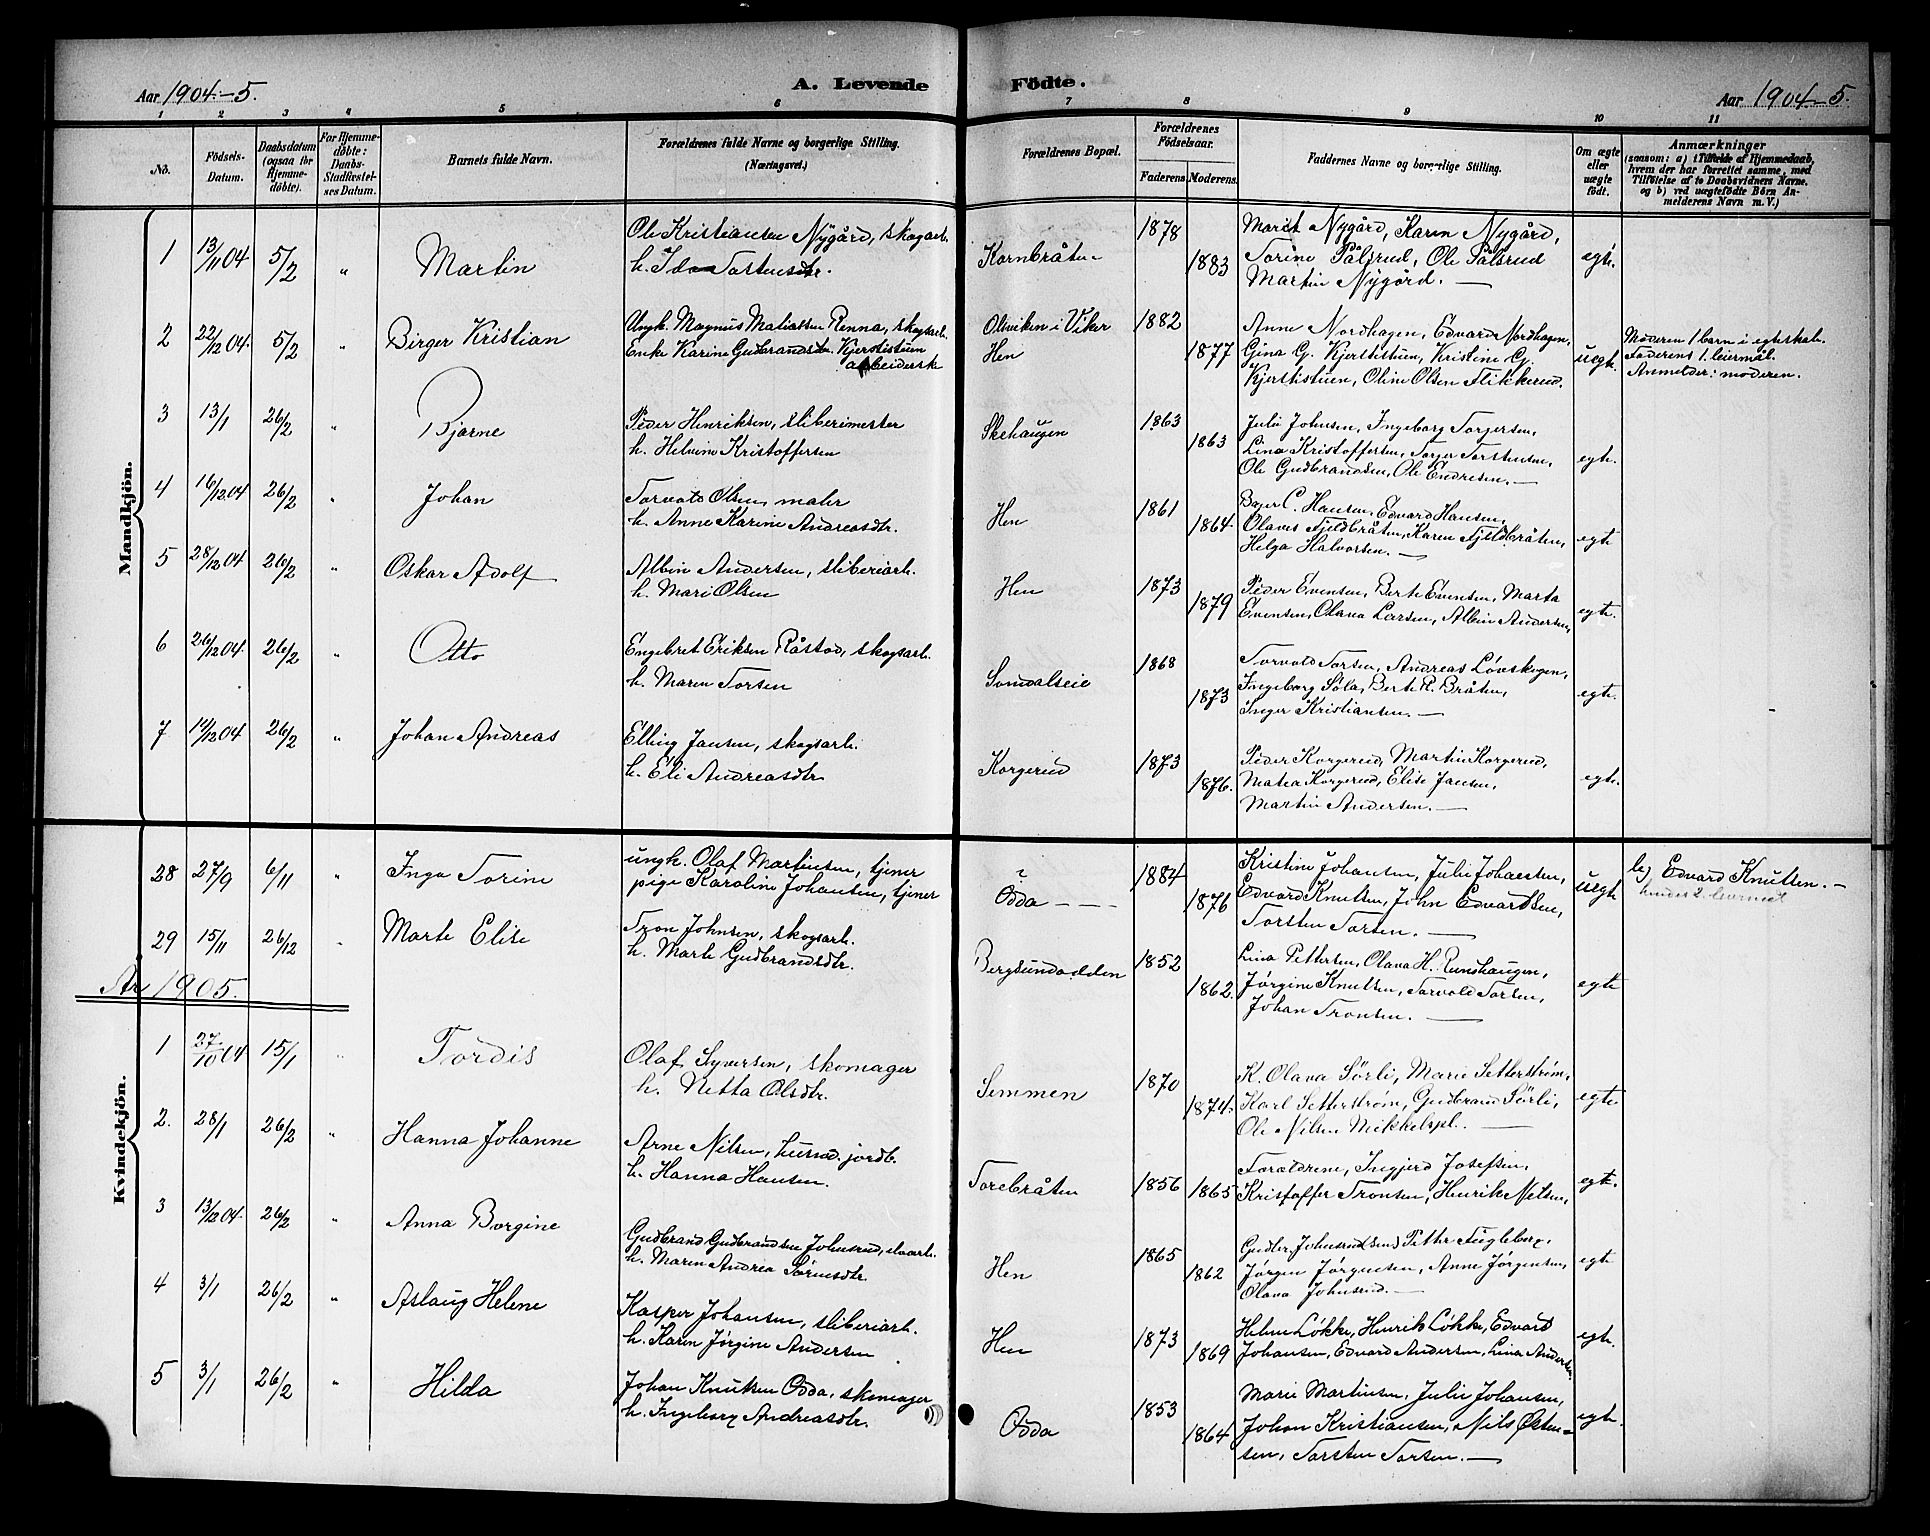 Aar 1904.-5.
A. Levende
Fødte.
Aar 1904-5.
1 2 3 4 5 6 7 8 9 10 11
No.
Fødsels-
Datum.
Daabsdatum
(ogsaa for
Hjemme-
døbte).
For Hjemme-
døbte:
Daabs-
Stadfæstel-
ses Datum.
Barnets fulde Navn.
Forældrenes fulde Navne og borgerlige Stilling.
(Næringsvei.)
Forældrenes Bopæl.
Forældrenes
Fødselsaar.
Faderens Moderens
Faddernes Navne og borgerlige Stilling.
Om ægte
eller
uægte
født.
Anmærkninger
(saasom: a) i Tilfælde af Hjemmedaab,
hvem der har forrettet samme, med
Tilføielse af to Daabsvidners Navne,
og b) ved uægtefødte Børn An-
melderens Navn m. V.)
Mandkjön.
1 13/11 04 5/2 " Martin
Ole Kristiansen Nygård, skogarb.
h. Ida Torstensdtr.
Kornbråten
1878
1883
Marit Nygård, Karen Nygård,
Torine Pålsrud, Ole Pålsrud
Martin Nygård. —
egte.
2 22/12 04. 5/2 " Birger Kristian
Ungk. Magnus Matiassen Renna, skogsarb.
Enke Karine Gudbrandsdtr. Kjerstistuen
arbeiderske
Olsviken i Viker
Hen
1882
1877
Anne Nordhagen, Edvard Nordhagen,
Gina G. Kjerstistuen, Kristine G.
Kjerstistuen, Oline Olsen Flikkerud.
uegt.
Moderen 1 barn i egteskab.
Faderens 1. leiermål.
Anmelder: moderen.
3 13/1 26/2 " Bjarne
Peder Henriksen, sliberimester
h. Helvine Kristoffersen
Skehaugen
1863
1863
Julie Johnsen, Ingeborg Torgersen,
Lina Kristoffersen, Torger Torstensen,
Ole Gudbrandsen, Ole Endresen. —
egte.
4 16/12 04 26/2 " Johan
Torvald Olsen, maler
h. Anne Karine Andreasdtr.
Hen
1861
1864
C. Hansen, Edvard Hansen,
Olaves Fjeldbråten, Karen Fjeldbråten,
Helga Halvorsen. —
egte
5 28/12 04 26/2 " Oskar Adolf
Albin Andersen, sliberiarb.
h. Mari Olsen
Hen
1873
1879
Peder Evensen, Berte Evensen, Marta
Evensen, Olava Larsen, Albin Andersen,
egte.
6 26/12 04. 26/2 " Otto
Engebret Eriksen Råstad, skogsarb.
h. Maren Torsen
Somdalseie
1868
1873
Torvald Torsen, Andreas Lövskogen,
Ingeborg Söla, Berte R. Bråten,
Inger Kristiansen. —
egte.
7 14/12 04 26/2 " Johan Andreas
Elling Jansen, skogsarb.
h. Eli Andreasdtr
Korgerud
1873
1876.
Peder Korgerud, Martin Korgerud,
Matea Korgerud, Elise Jansen,
Martin Andersen. —
egte.
Kvindekjön.
28 27/9 6/11 " Inga Torine
ungk. Olaf Martinsen, tjener
pige Karoline Johansen, tjener
Odda — —
1884
1876
Kristine Johansen, Julie Johansen,
Edvard Knutsen, John Edvardsen,
Torsten Torsen. —
uegte
b) Edvard Knutsen. —
29 15/11 26/12 " Marte Elise
Tron Johnsen, skogsarb.
h. Marte Gudbrandsdtr.
Bergsundodden
1852
1862.
Lina Pettersen, Olava H. Runshaugen,
Jørgine Knutsen, Torvald Torsen,
Johan Tronsen. —
egte
År 1905.
1 27/10 04 15/1 " Tordis
Olaf Syversen, skomager
h. Netta Olsdtr.
Semmen
1870
1874.
K. Olava Sörli, Marie Setterström,
Karl Setterström, Gudbrand Sörli,
Ole Nilsen Mikkelspl. —
egte
2. 28/1 26/2 " Hanna Johanne
Arne Nilsen, jordb.
h. Hanna Hansen.
Torebråten
1856
1865
Forældrene, Ingjerd Josefsen,
Kristoffer Tronsen, Henrik Nilsen,
egte.
3 13/12 04. 26/2 " Anna Borgine
Gudbrand Gudbrandsen Johnsrud,
h. Maren Andrea Sörensdtr.
Hen
1865
1862
Johnsrud Petter Fugleberg,
Jørgen Jørgensen, Anne Jørgensen,
Olava Johnsrud. —
egte
4 3/1 26/2 " Aslaug Helene
Kasper Johansen, sliberiarb.
h. Karen Jørgine Andersen
Hen
1873
1869
Helene Løkke, Henrik Løkke, Edvard
Johansen, Edvard Andersen, Lina Andersen.
egte.
5 3/1 26/2 " Hilda
Johan Knutsen Odda, skomager
h. Ingeborg Andreasdtr.
Odda
1853
1864
Marie Martinsen, Julie Johansen,
Johan Kristiansen, Nils Østen-
sen, Torsten Torsen. —
egte.